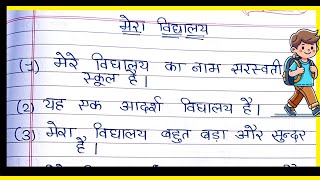 मेरा विद्यालय
(1) मेरे विद्यालय का नाम सरस्वती
स्कूल है।
(2) यह एक आदर्श विद्यालय है।
(3) मेरा विद्यालय बहुत बड़ा और सुन्दर
है।